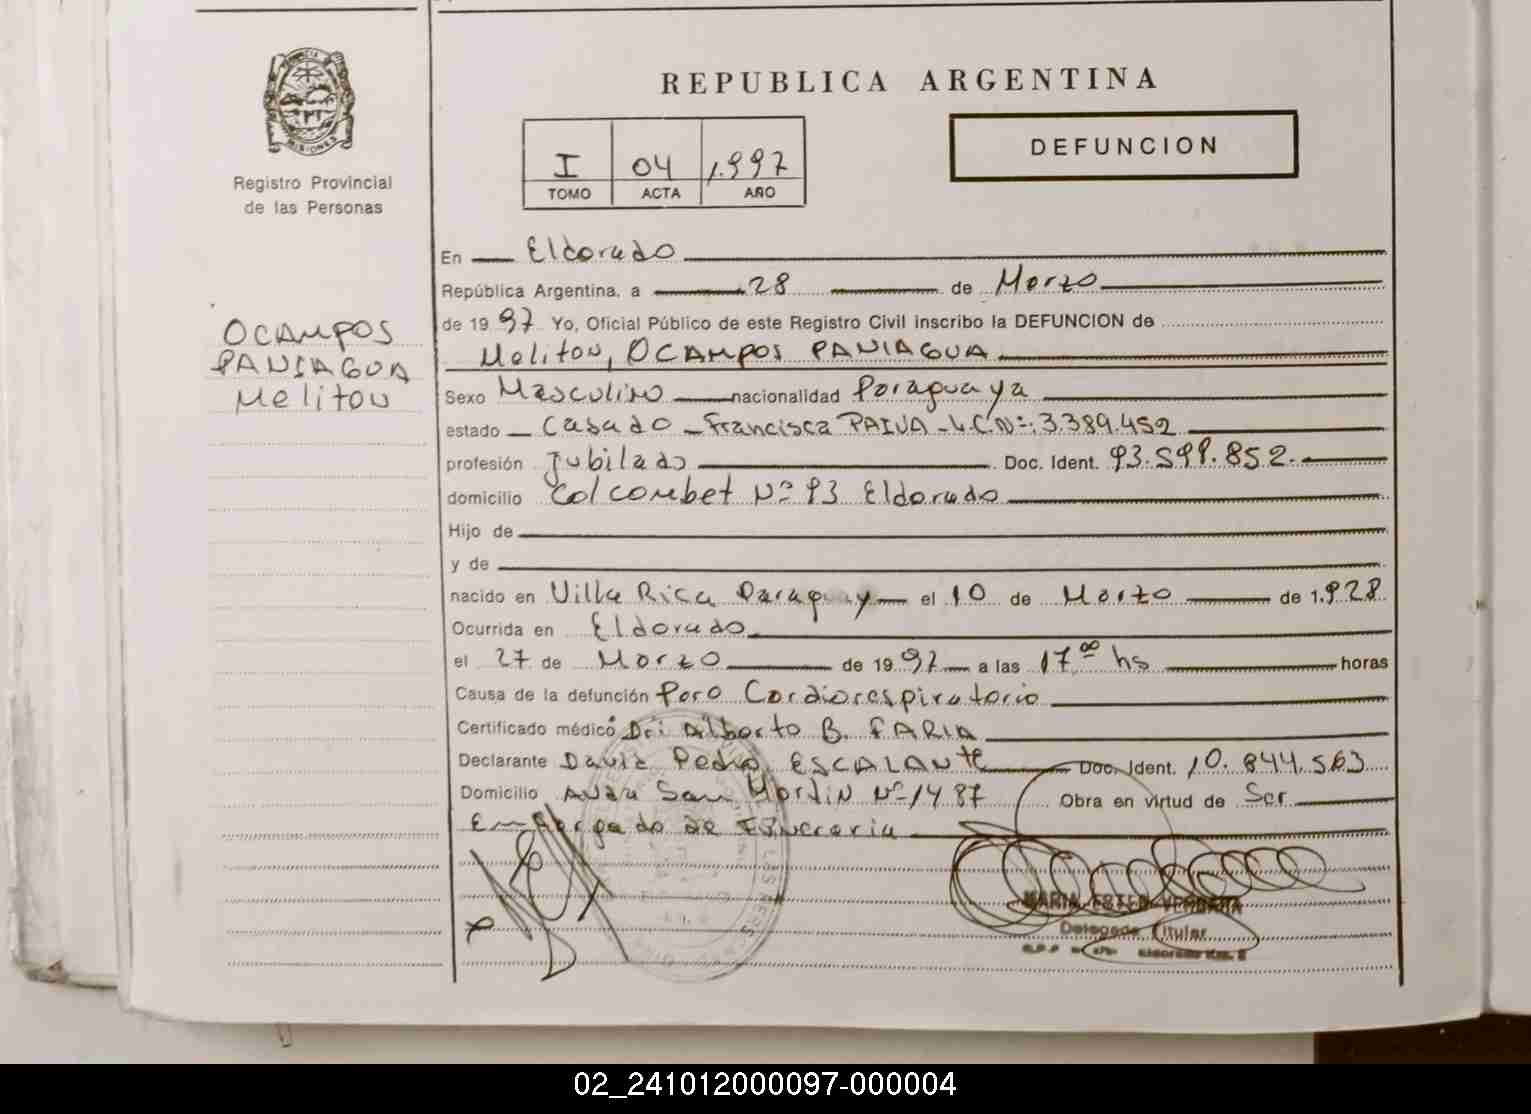 REPUBLICA ARGENTINA
DEFUNCION
I 04 1.997
TOMO ACTA AÑO
PROVINCIA DE
MISIONES
Registro Provincial
de las Personas
OCAMPOS
PANIAGUA
Meliton
En Eldorado
República Argentina, a 28 de Marzo
de 1997 Yo, Oficial Público de este Registro Civil inscribo la DEFUNCION de
Meliton, OCAMPOS PANIAGUA
Sexo Masculino nacionalidad Paraguaya
estado Casado - Francisca PAIVA - L.C.Nº: 3.389.452
profesión Jubilado Doc. Ident. 93.599.852.
domicilio Colcombet Nº 93 Eldorado
Hijo de
y de
nacido en Villa Rica Paraguay el 10 de Marzo de 1.928
Ocurrida en Eldorado
el 27 de Marzo de 1997 a las 17⁰⁰ hs horas
Causa de la defunción Paro Cardiorespiratorio
Certificado médico Dr: Alberto B. FARIA
Declarante David Pedro ESCALANte Doc. Ident. 10.844.563
Domicilio Avda San Martin Nº 1487 Obra en virtud de Ser
Encargado de Funeraria
MARIA ESTER VERGARA
Delegada Titular
02_241012000097-000004